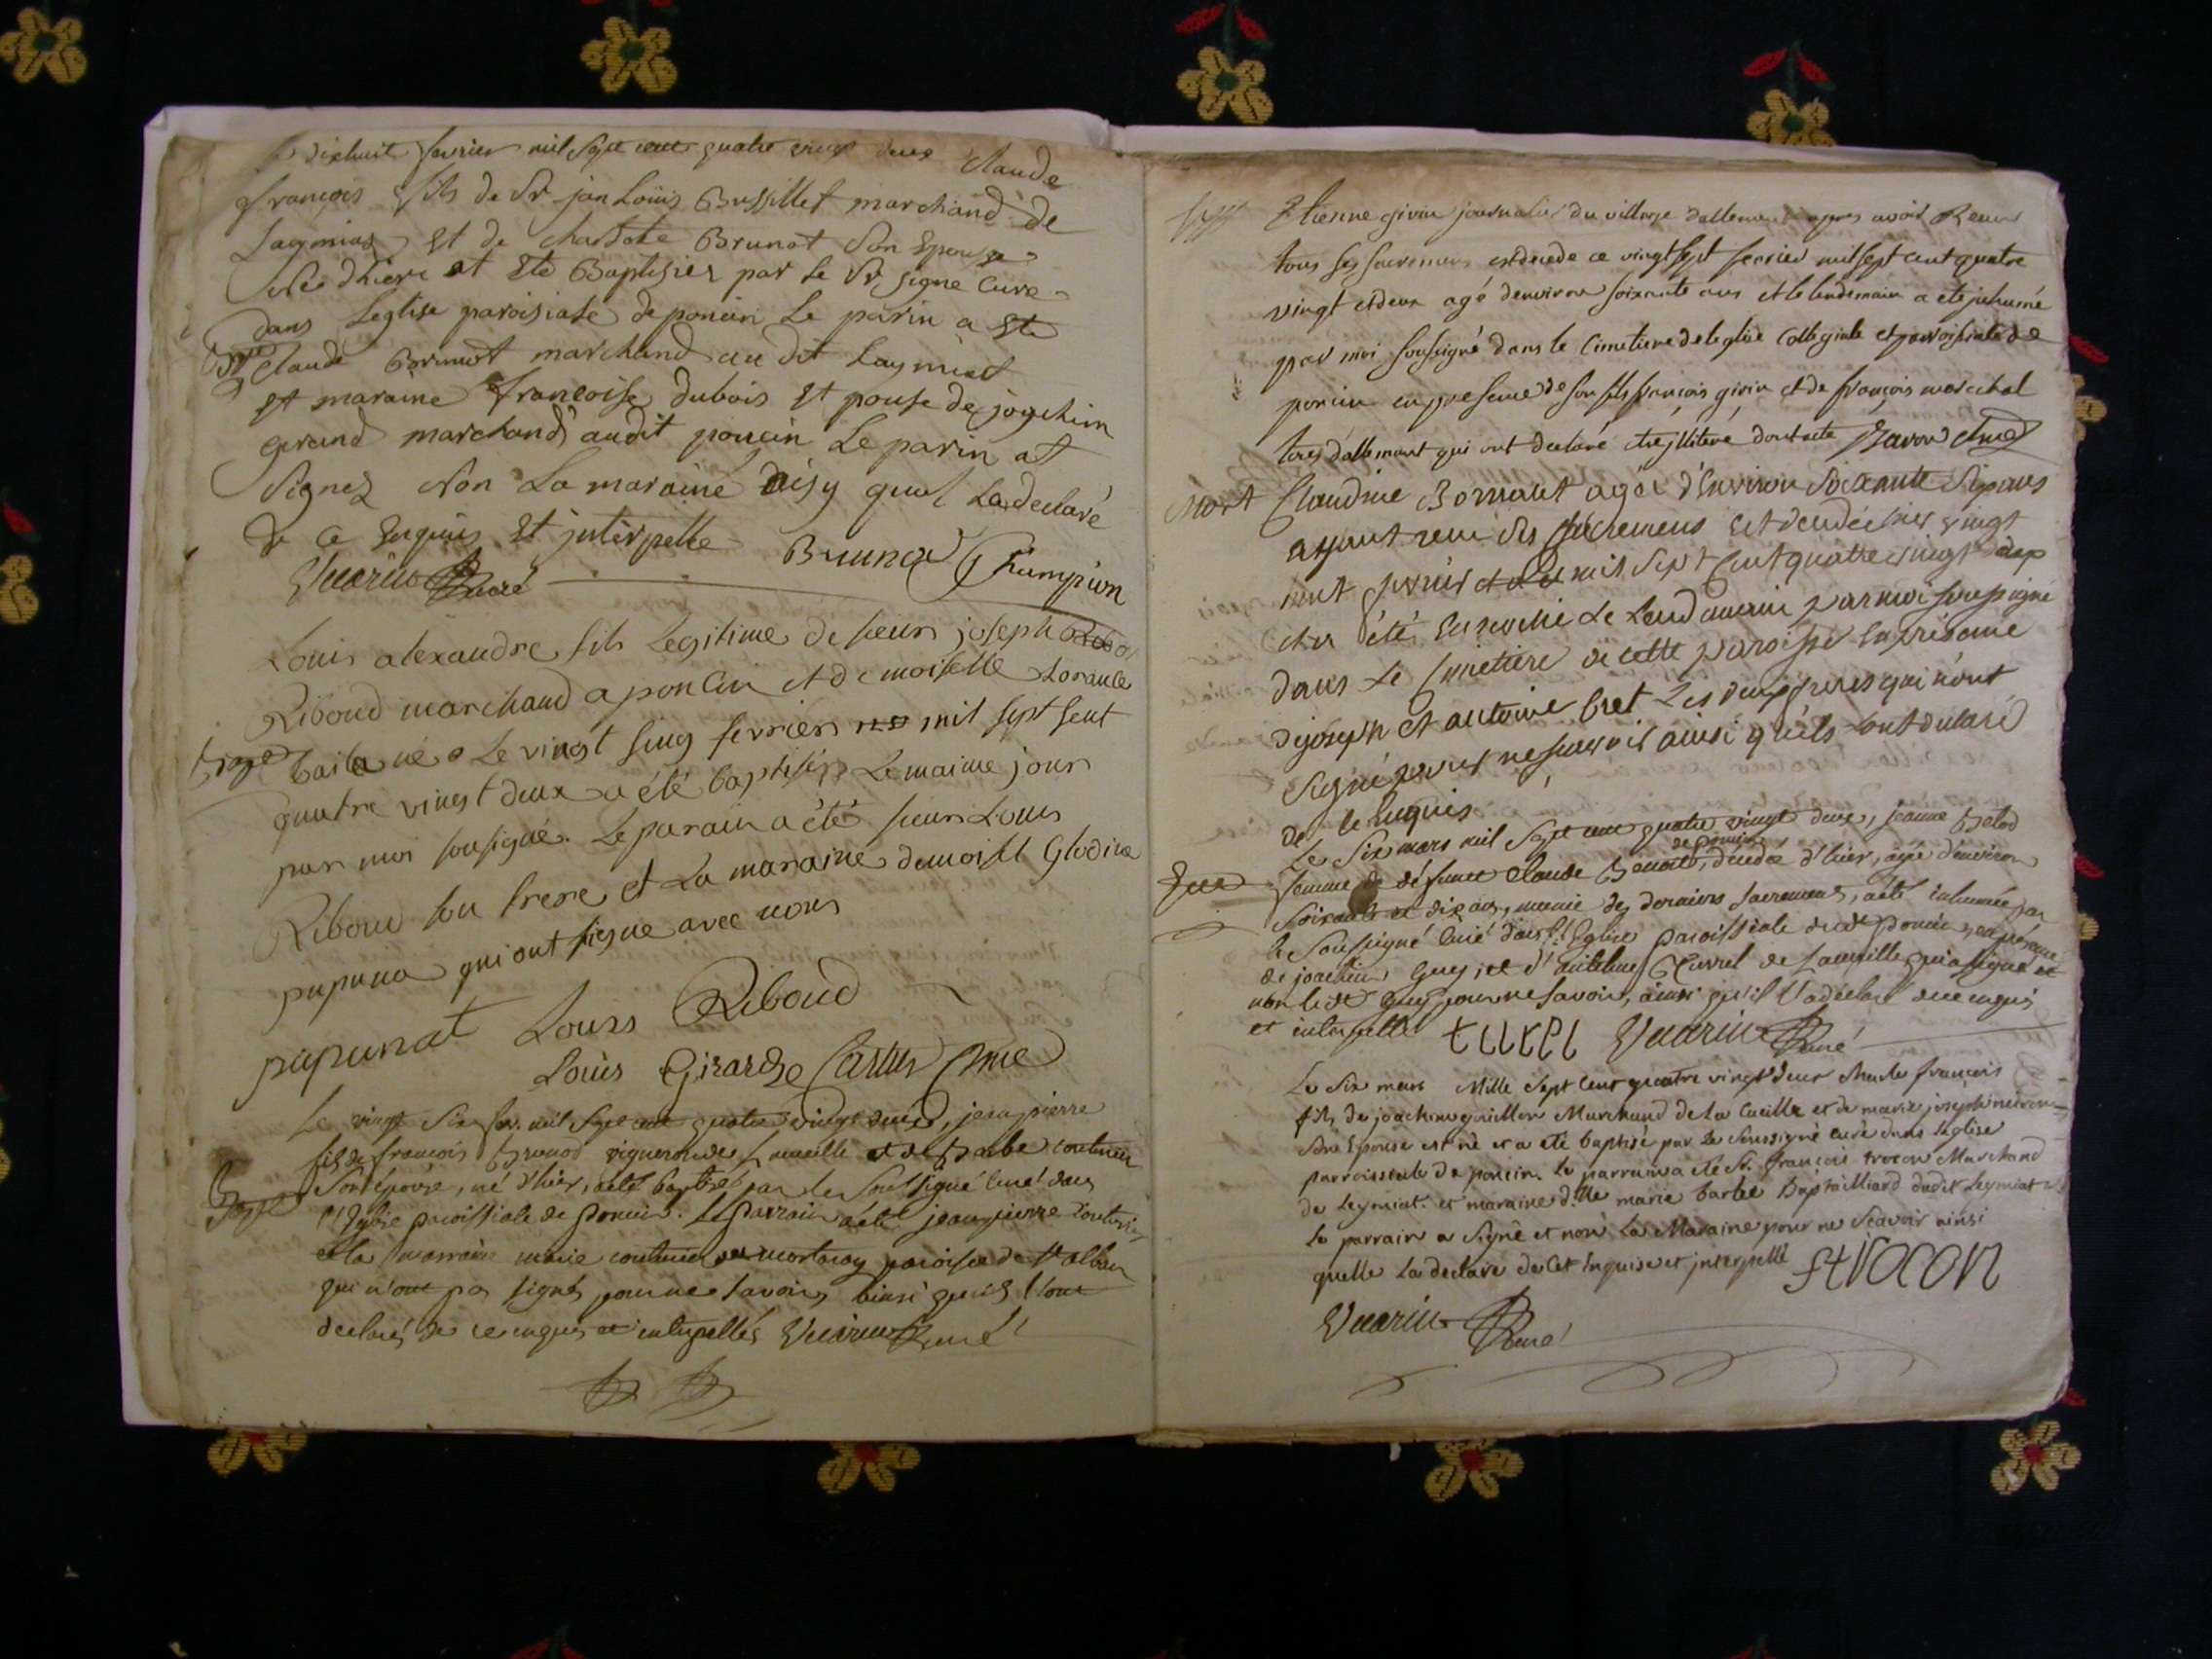 dixhuit fevrier mil sept cent quatre vingt deux Claude
françois fils de Sr jan Loüis Bussillet marchand de
Laymias et de charlote Brunet son Epouse
née dhiere at Ete Baptisiez par le Sr signe Cure
dans Leglise paroisiale de poncin Le parin a Ete
Bpt
Claude Brunet marchand au dit Laymiat
et maraine francoise dubois Et pouse de joychim
grand marchand audit poncin Le parin at
Signez Non La maraine aisy quel La declaré
de ce Enquis Et jnterpelle Brunet Champion
Vuarin Curé
Louis alexandre fils Legitime de sieur joseph
Riboud marchand a poncin et demoiselle Lorance
Bapt
baila né Le vingt sinq fevrier mil sept sent
quatre vingt deux a été baptisé Le maime jour
par moi sousigné. Le parain a été sieur Louis
Riboud son frere et La maraine demoiselle Glodine
papuna qui ont signe avec nous
papunat Louis Riboud
Louis Girard
Le vingt six fev. mil sept cent quatre vingt deux, jean pierre
fils de francois Brunod vigneron de et de Barbe couturier
Bapt
son épouse, né d'hier, a été baptisé par le Soussigné Curé dans
l'Eglise paroissiale de Poncin. Le Parrain a été jean pierre couturier
et la marraine marie couturier de mortaray paroisse de St alban
qui n'ont pas signés pour ne savoir, ainsi qu'ils l'ont
declaré, de ce enquis et interpellés Vuarin Curé
Etienne givin journalier du village dallement apres avoir Receu
tous ses sacremens est decede ce vingt sept fevrier mil sept cent quatre
vingt et deux agé denviron soixante ans et le lendemain a ete jnhumé
par moi soussigné dans le Cimetiere de leglise Collegiale et parroissiale de
poncin en presence de son fils françois givin et de françois marechal
tous dallement qui ont declaré etre jlliteré dont acte Savon
Mort
Claudine Bornant agée d'Environ Soixante Six ans
ayant reçu les sacremens est decedé hier vingt
huit fevrier mil Sept Cent quatre vingt deux
et a été Ensevelie Le Lendemain par moi soussigné
dans Le Cimetiere de cette paroisse En présence
de joseph et antoine Cret Les deux freres qui n'ont
Signé pour ne sçavoir ainsi qu'ils l'ont declaré
de ce Enquis
Le Six mars mil sept cent quatre vingt deux, jeanne Belod
de Poncin
femme de défunct Claude Benoit, décédée d'hier, agée d'environ
Soixante et dix ans, munie des derniers sacremens, a été inhumée par
le Soussigné Curé dans l'Eglise paroissiale dudt Poncin, en présence
de joachim Guy, et d'antelme Curvel de Lameille, qui a signé et
non ledt Guy pour ne savoir, ainsi qu'il l'a declaré de ce enquis
et interpellé Vuarin Curé
Le Six mars Mille Sept Cent quatre vingt deux charle françois
fils de joachim goüillon Marchand de La Cueille et de marie joseph neiron
Son Epouse est né et a eté baptisé par le Soussigné curé dans leglise
parroissiale de poncin. le parrain a été Sr. françois trocon Marchand
de Leymiat. et maraine d.lle marie barbe Baptailliard dudit Leymiat
le parrain a Signé et non La Maraine pour ne Scavoir ainsi
quelle La declare de Cet Enquise et jnterpellé f trocon
Vuarin Curé